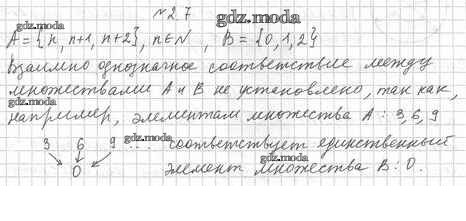 №2.7
gdz.moda
gdz.moda
A = {n, n+1, n+2}, n∈N, B = {0, 1, 2}
Взаимно однозначное соответствие между
множествами A и B не установлено, так как,
gdz.moda
например, элементам множества A: 3, 6, 9
3 6 9 gdz.moda ... соответствует единственный
gdz.moda
0 элемент множества B: 0.